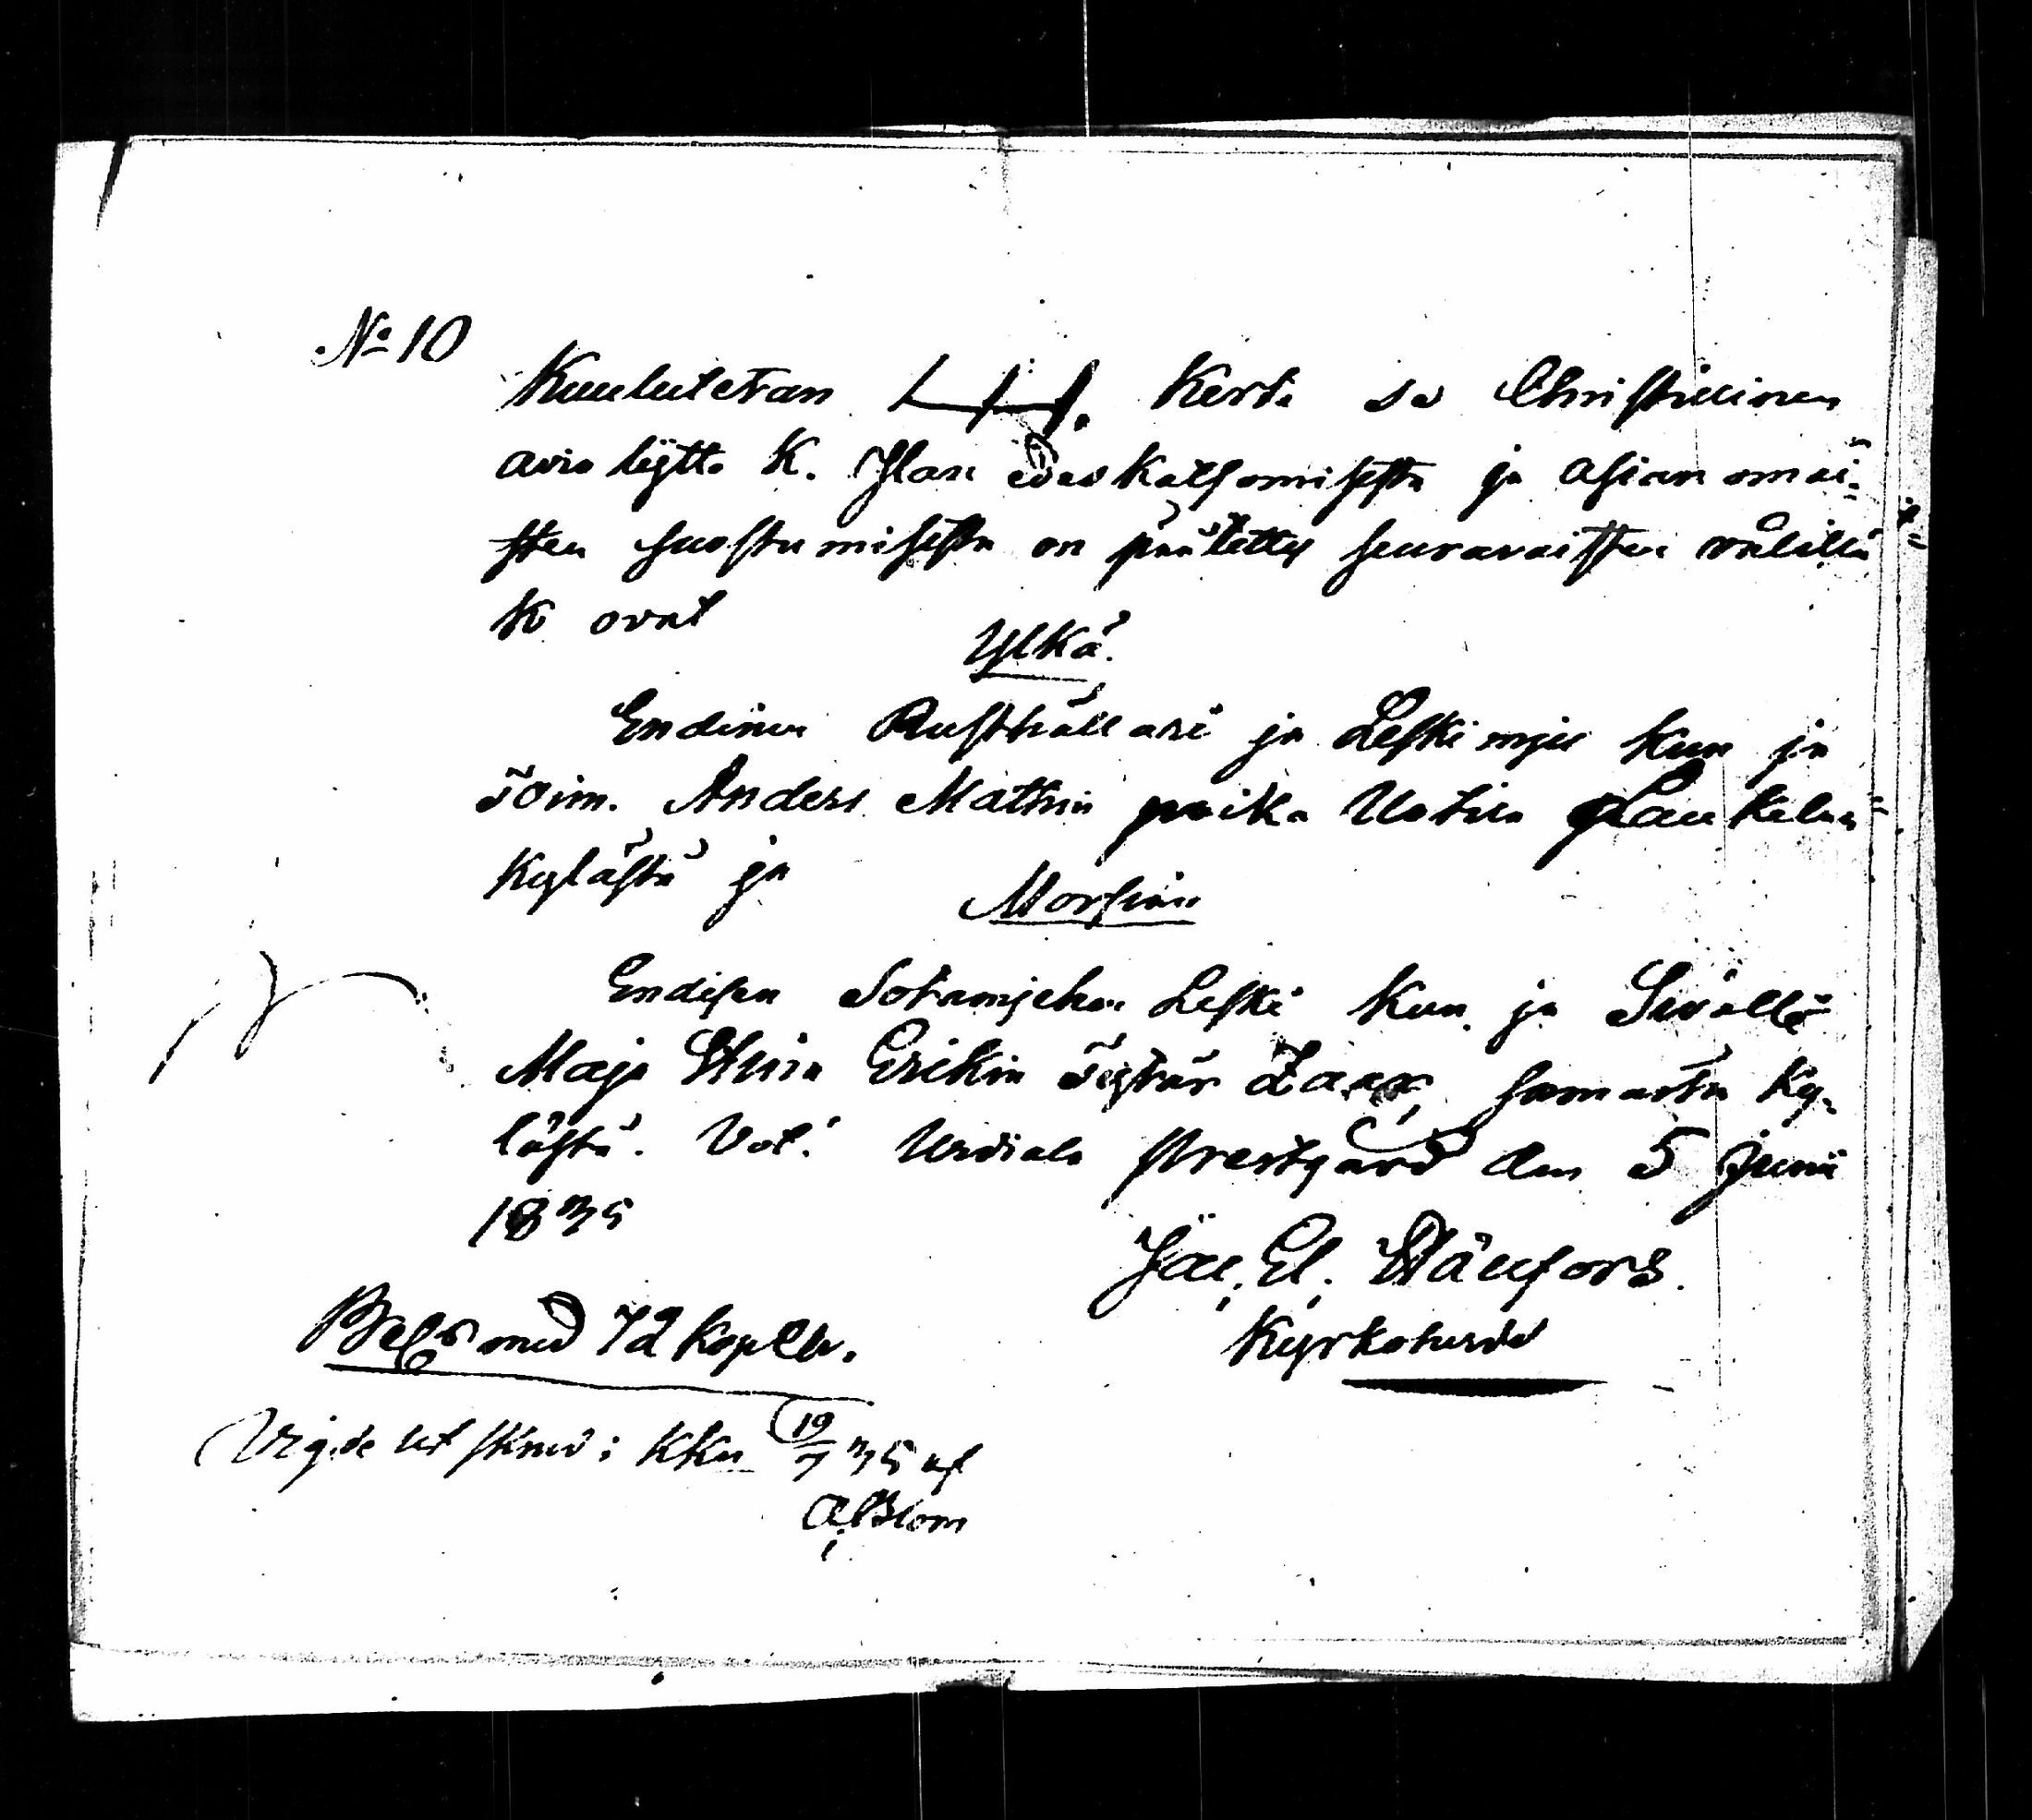 № 10
Kuulutetan 1 Kerta se Christillinen
avio liytto K. Ilan edes Katsomisesta ja asian omai-
sten suostumisesta on päätetty seuravaisten välillä
K ovat
Ylkä.
Endinen Rusthållari ja Leski mjes Kun ja
Toim. Anders Mathin poika Uotila Laukelan
Kylästä ja
Morsian
Endisen Sotamjehen Leski Kun. ja Siviallé
Maja Stina Erikin Tytär Zaar, samasta Ky-
lästä. Vot. Urdiala Prestgård den 5 Junii
1835
Jac. El. Hänfors.
Kyrkoherde
Bels med 72 kop. .
Vigde ut skrud i KKn 19/7 35 af
A. Blom